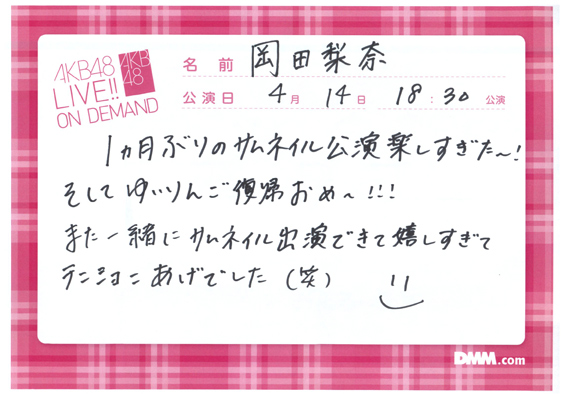 AKB48
LIVE!!
ON DEMAND
AKB
48
名前 岡田梨奈
公演日 4月 14日 18:30 公演
1ヵ月ぶりのサムネイル公演楽しすぎた〜!
そしてゆいりんご復帰おめ〜!!!
また一緒にサムネイル出演できて嬉しすぎて
テンションあげでした(笑)
DMM.com